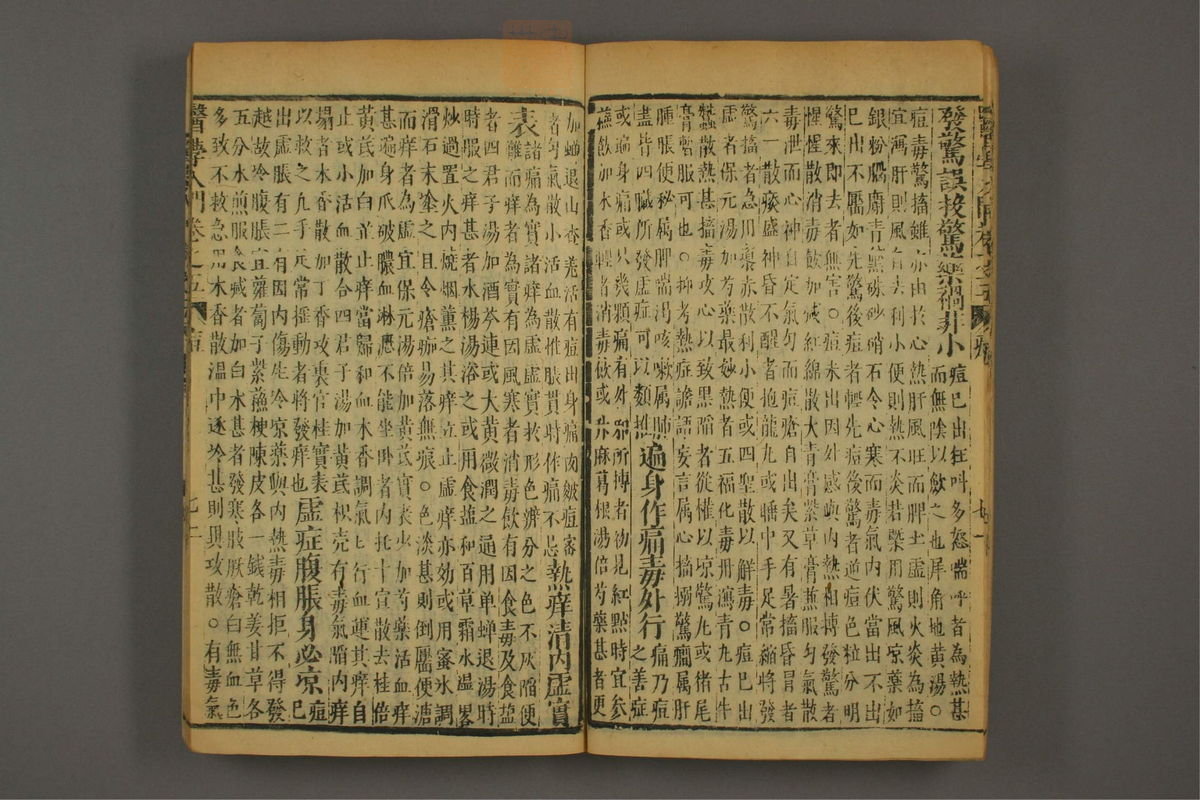 發驚誤投驚藥禍非小
痘已出狂叫多怒喘呼者為熱甚
而無陰以歛之也犀角地黄湯。
痘毒驚搐雖亦由於心熱肝風旺而脾土虛則火炎為搐
宜瀉肝則風自去利小便則熱不炎若槩用驚風凉藥如
銀粉腦麝青黛硃砂硝石令心寒而毒氣内伏當出不出
已出不靨如先驚後痘者輕先痘後驚者逆痘色粒分明
驚來即去者無害。痘未出因外感與内熱相搏發驚者
惺惺散消毒飲加减紅綿散大青膏紫草膏兼服勻氣散
毒泄而心神自定氣勻而痘瘡自出矣又有暑搐昏冒者
六一散痰盛神昏不醒者抱龍丸或睡中手足常縮將發
驚搐者急用瀉赤散利小便或四聖散以解毒。痘已出
虛者保元湯加芍藥最妙熱者五福化毒丹瀉青丸古牛
蠶散熱甚搐毒攻心以致黑陷者從權以凉驚丸或猪尾
膏暫服可也。抑考熱症譫語妄言属心搐搦驚癎属肝
腫脹便秘属脾喘渴咳嗽属肺
盡皆四臟所發虛症可以類推
遍身作痛毒外行
痛乃痘
之善症
或遍身痛或只幾顆痛有外邪所搏者初見紅點時宜參
蘇飲加木香輕者消毒飲或升麻葛根湯倍芍藥甚者更
加蟬退山查羗活有痘出身痛肉皺痘
者勻氣散小活血散惟脹貫時作痛不忌
熱痒清内虛實
表
諸痛為實諸痒為虛實於形色辨分之色不灰陷便
難而痒者為實有因風寒者消毒飲有因食毒及食盐
者四君子湯加酒芩連或大黄微潤之通用单蟬退湯時
時服之痒甚者水楊湯浴之或用食盐和百草霜水温畧
炒過置火内燒烟薰之其痒立止虛痒亦効或用蜜水調
滑石末塗之且令瘡痂易落無痕。色淡甚則倒靨便溏
而痒者為虛宜保元湯倍加黄芪實表少加芍藥活血痒
甚遍身爪破膿血淋應不能坐卧者内托十宣散去桂倍
黄芪加白芷止痒當歸和血木香調氣匕行血運其痒自
止或小活血散合四君子湯加黄芪枳壳有毒氣陷内痒
塌者木香散加丁香攻裏官桂實表
以救之凡手足常揺動者將發痒也
虛症腹脹身必凉
痘
已
出虛脹有二有因内傷生冷凉藥與内熱毒相拒不得發
越故冷腹脹宜蘿蔔子紫蘇梗陳皮各一錢乾姜甘草各
五分水煎服食臧者加白术甚者發寒肢厥瘡白無血色
多致不救急用木香散温中逐冷甚則異攻散。有毒氣
醫學入門 卷之五 痘 七二